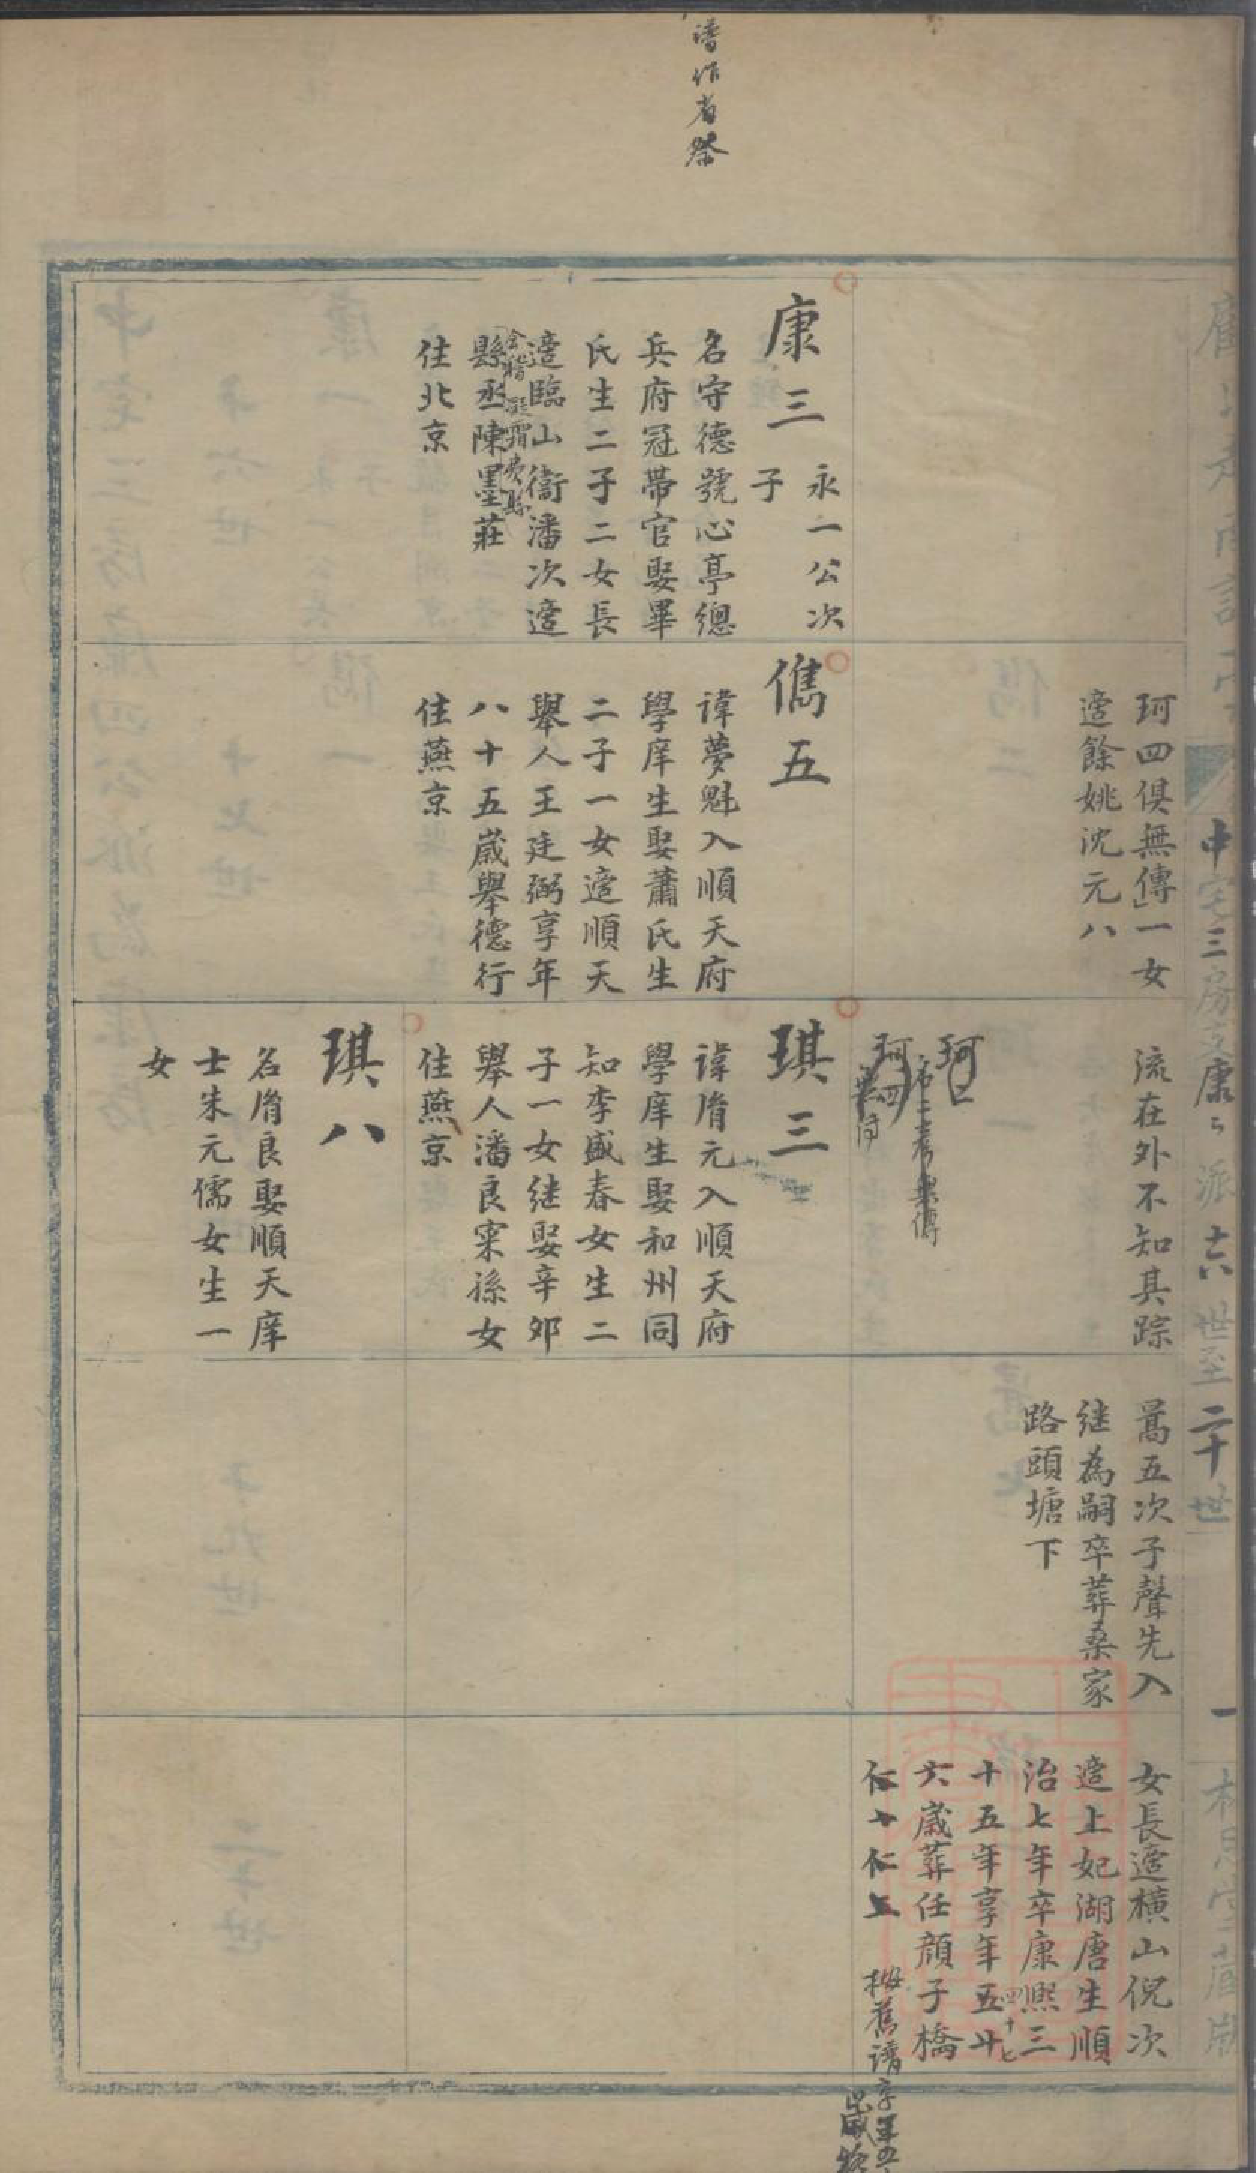 譜作者祭
中宅三房之康三派十六世至二十世
一
康三
永一公次
子
名守德號心亭總
兵府冠帶官娶畢
氏生二子二女長
適臨山衛潘次適
縣丞陳墨莊
住北京
珂四俱無傳一女
適餘姚沈元八
儁五
諱夢魁入順天府
學庠生娶蕭氏生
二子一女適順天
舉人王廷弼享年
八十五歲舉德行
住燕京
流在外不知其踪
珂四
琪三
諱胤元入順天府
學庠生娶和州同
知李盛春女生二
子一女继娶辛郊
舉人潘良寀孫女
住燕京
琪八
名胤良娶順天庠
士朱元儒女生一
女
暠五次子聲先入
继為嗣卒葬桑家
路頭塘下
女長適橫山倪次
適上妃湖唐生順
治七年卒康熙三
十五年享年五十
四十七
六歲葬任顏子橋
仁十仁上
舊譜享年五